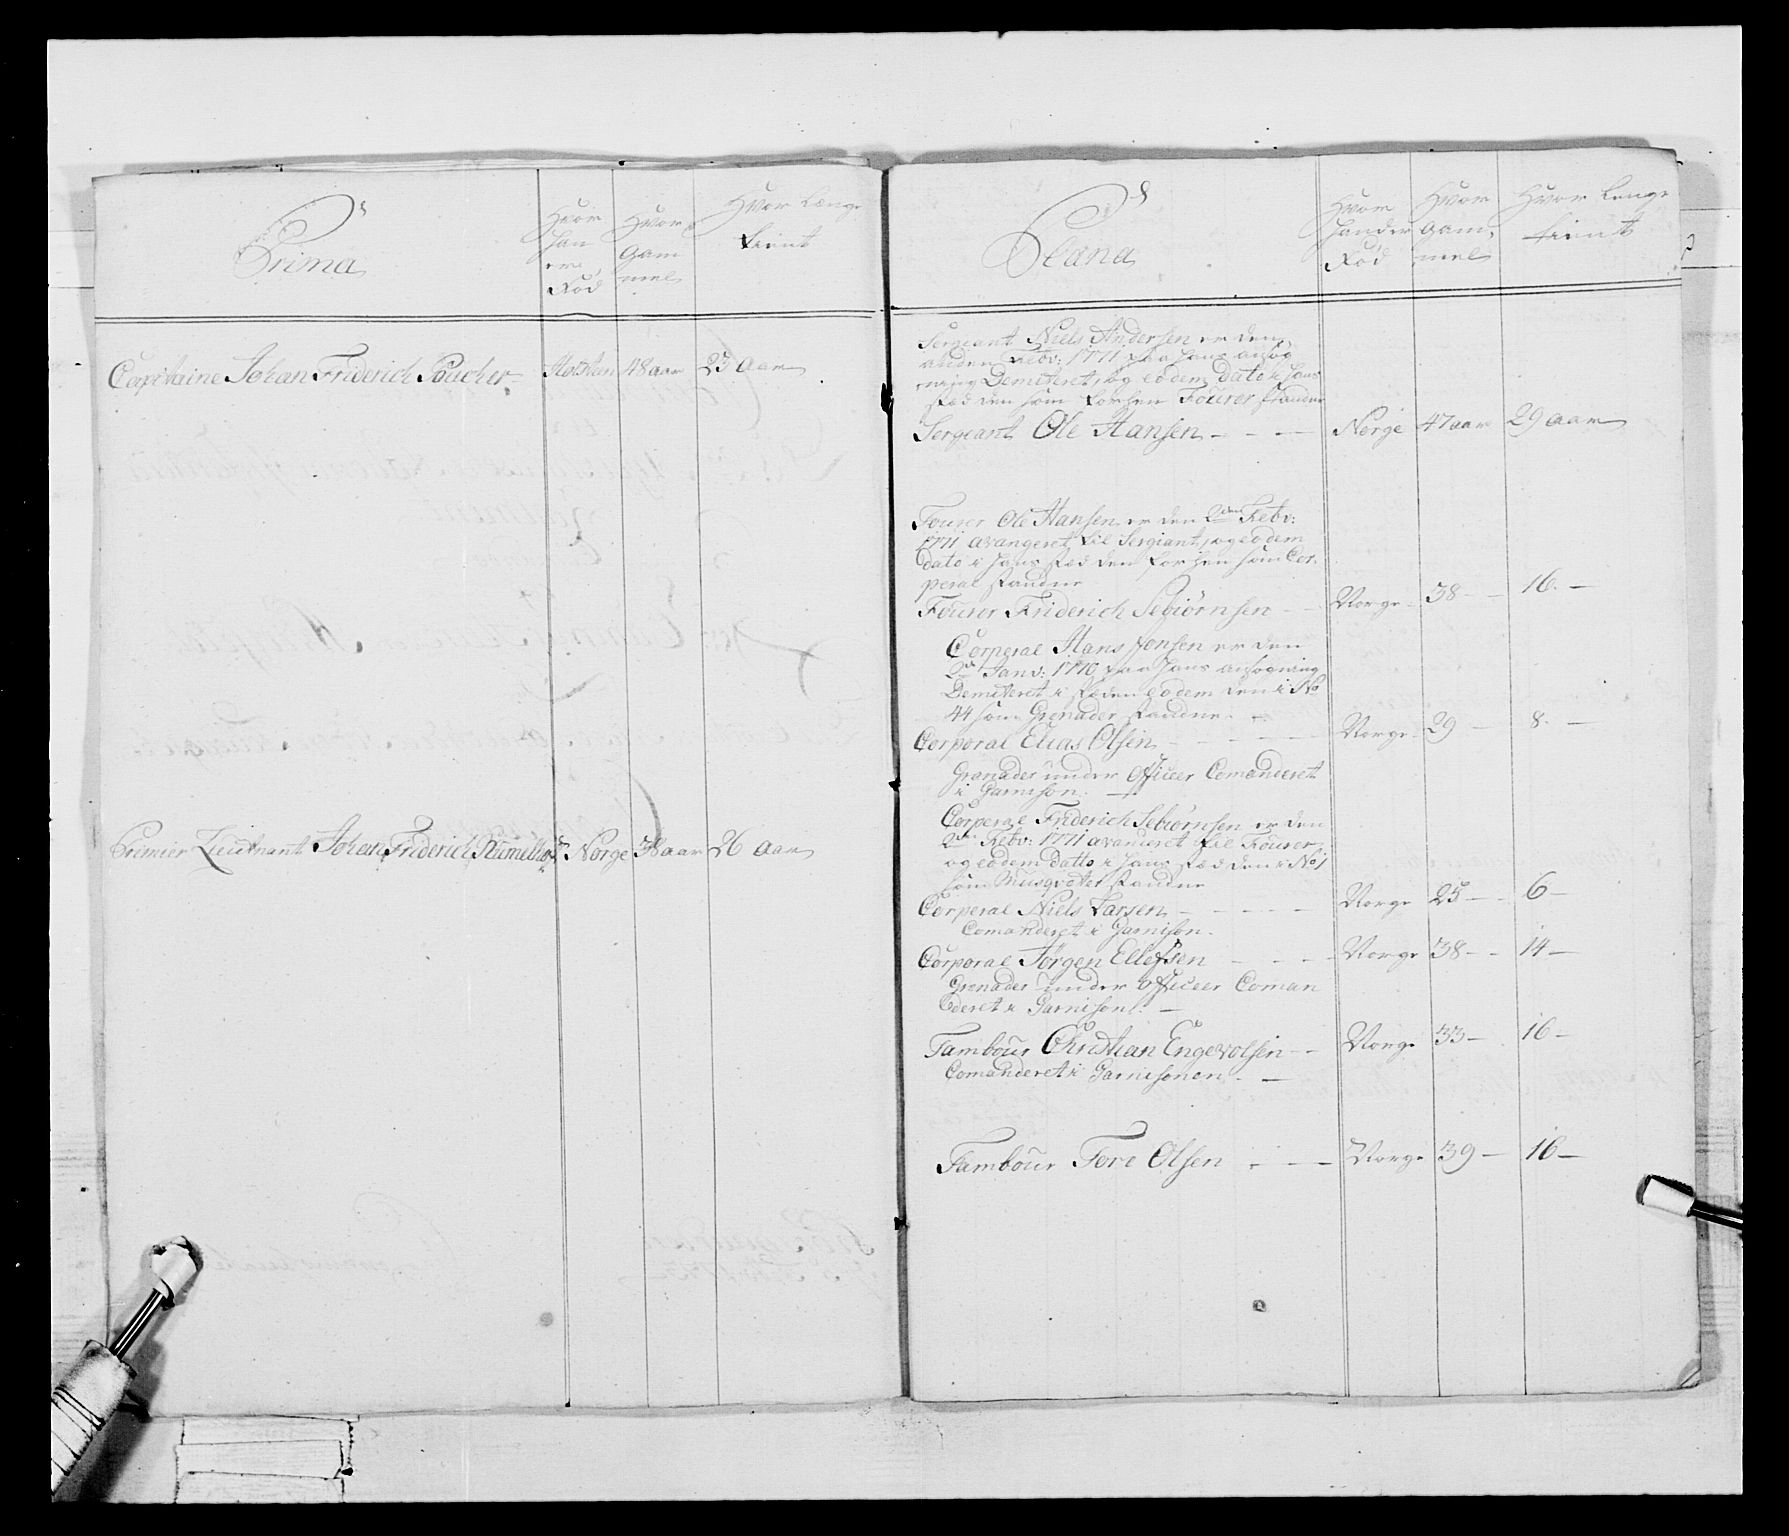 Prima
Hvor han er Fød
Hvor gam mel
Hvor Længe tient
Capitaine Johan Friderich Poucher Holsten 48 aar 23 aar
Premier Lieutnant Johan Friderich Norge 38 aar 26 aar
Plana
Hvor hand er Fød
Hvor gam, mel
Hvor Lenge tient
Sergeant Niels Andersen er den
anden Febv: 1771 paa hans ansøg
ning Demiteret, og eodem Dato i hans
sted den som forhen Fourer standne
Sergeant Ole Hansen - - - Norge 47 aar 29 aar
Fourer Ole Hansen er den 2den Febv:
1771 avangeret til Sergiant, og eodem
dato i hans sted den forhen som Cor,
peral standne
Fourer Friderich Sebiørnsen - - Norge 38 - - 16. -
Corperal Hans Jonsen er den
2de Janv: 1770 paa hans ansøgning
Demiteret i steden eodem den i No
44 som Grenader standne. -
Corporal Elias Olsen - - - - - Norge 29 - 8. -
Granader under Officeer Comanderet
i Garnison. -
Corperal Friderich Sebiørnsen er den
2den Febv: 1771 avanceret til Fourer,
og eodem datto i hans sted den i No 1
som Musqvoter standne
Corperal Niels Larsen - - - - - Norge 25 - - 6 -
Comanderet i Garnison.
Corporal Jørgen Ellefsen - - - - Norge 38 - - 14 -
Grenader under Officeer Coman
deret i Garnison. -
Tambour Christian Engevolsen - - Norge 33 - 16 -
Comanderet i Garnisonen. -
Tambour Tore Olsen - - Norge 39 - 16 -